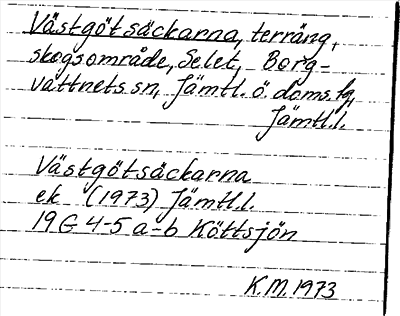 Västgötsäckarna, terräng,
skogsområde, Selet, Borg-
vattnets sn, Jämtl. ö. doms. lg,
Jämtl.l.
Västgötsäckarna
ek (1973) Jämtl.l.
19G 4-5 a-b Köttsjön
K.M. 1973